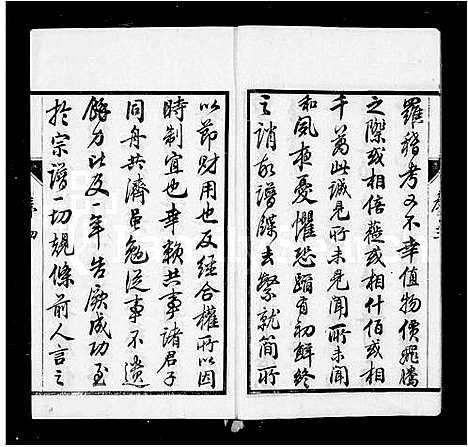 羅稽考又不幸值物價飛騰
之際或相倍蓰或相什佰或相
千萬此誠見所未見聞所未聞
和夙夜憂懼恐蹈有初鮮終
之誚故譜牒去繁就簡所
以節財用也反經合權所以因
時制宜也幸賴共事諸君子
同舟共濟黽勉從事不遺
餘力比及一年告厥成功至
於宗譜一切規條前人言之